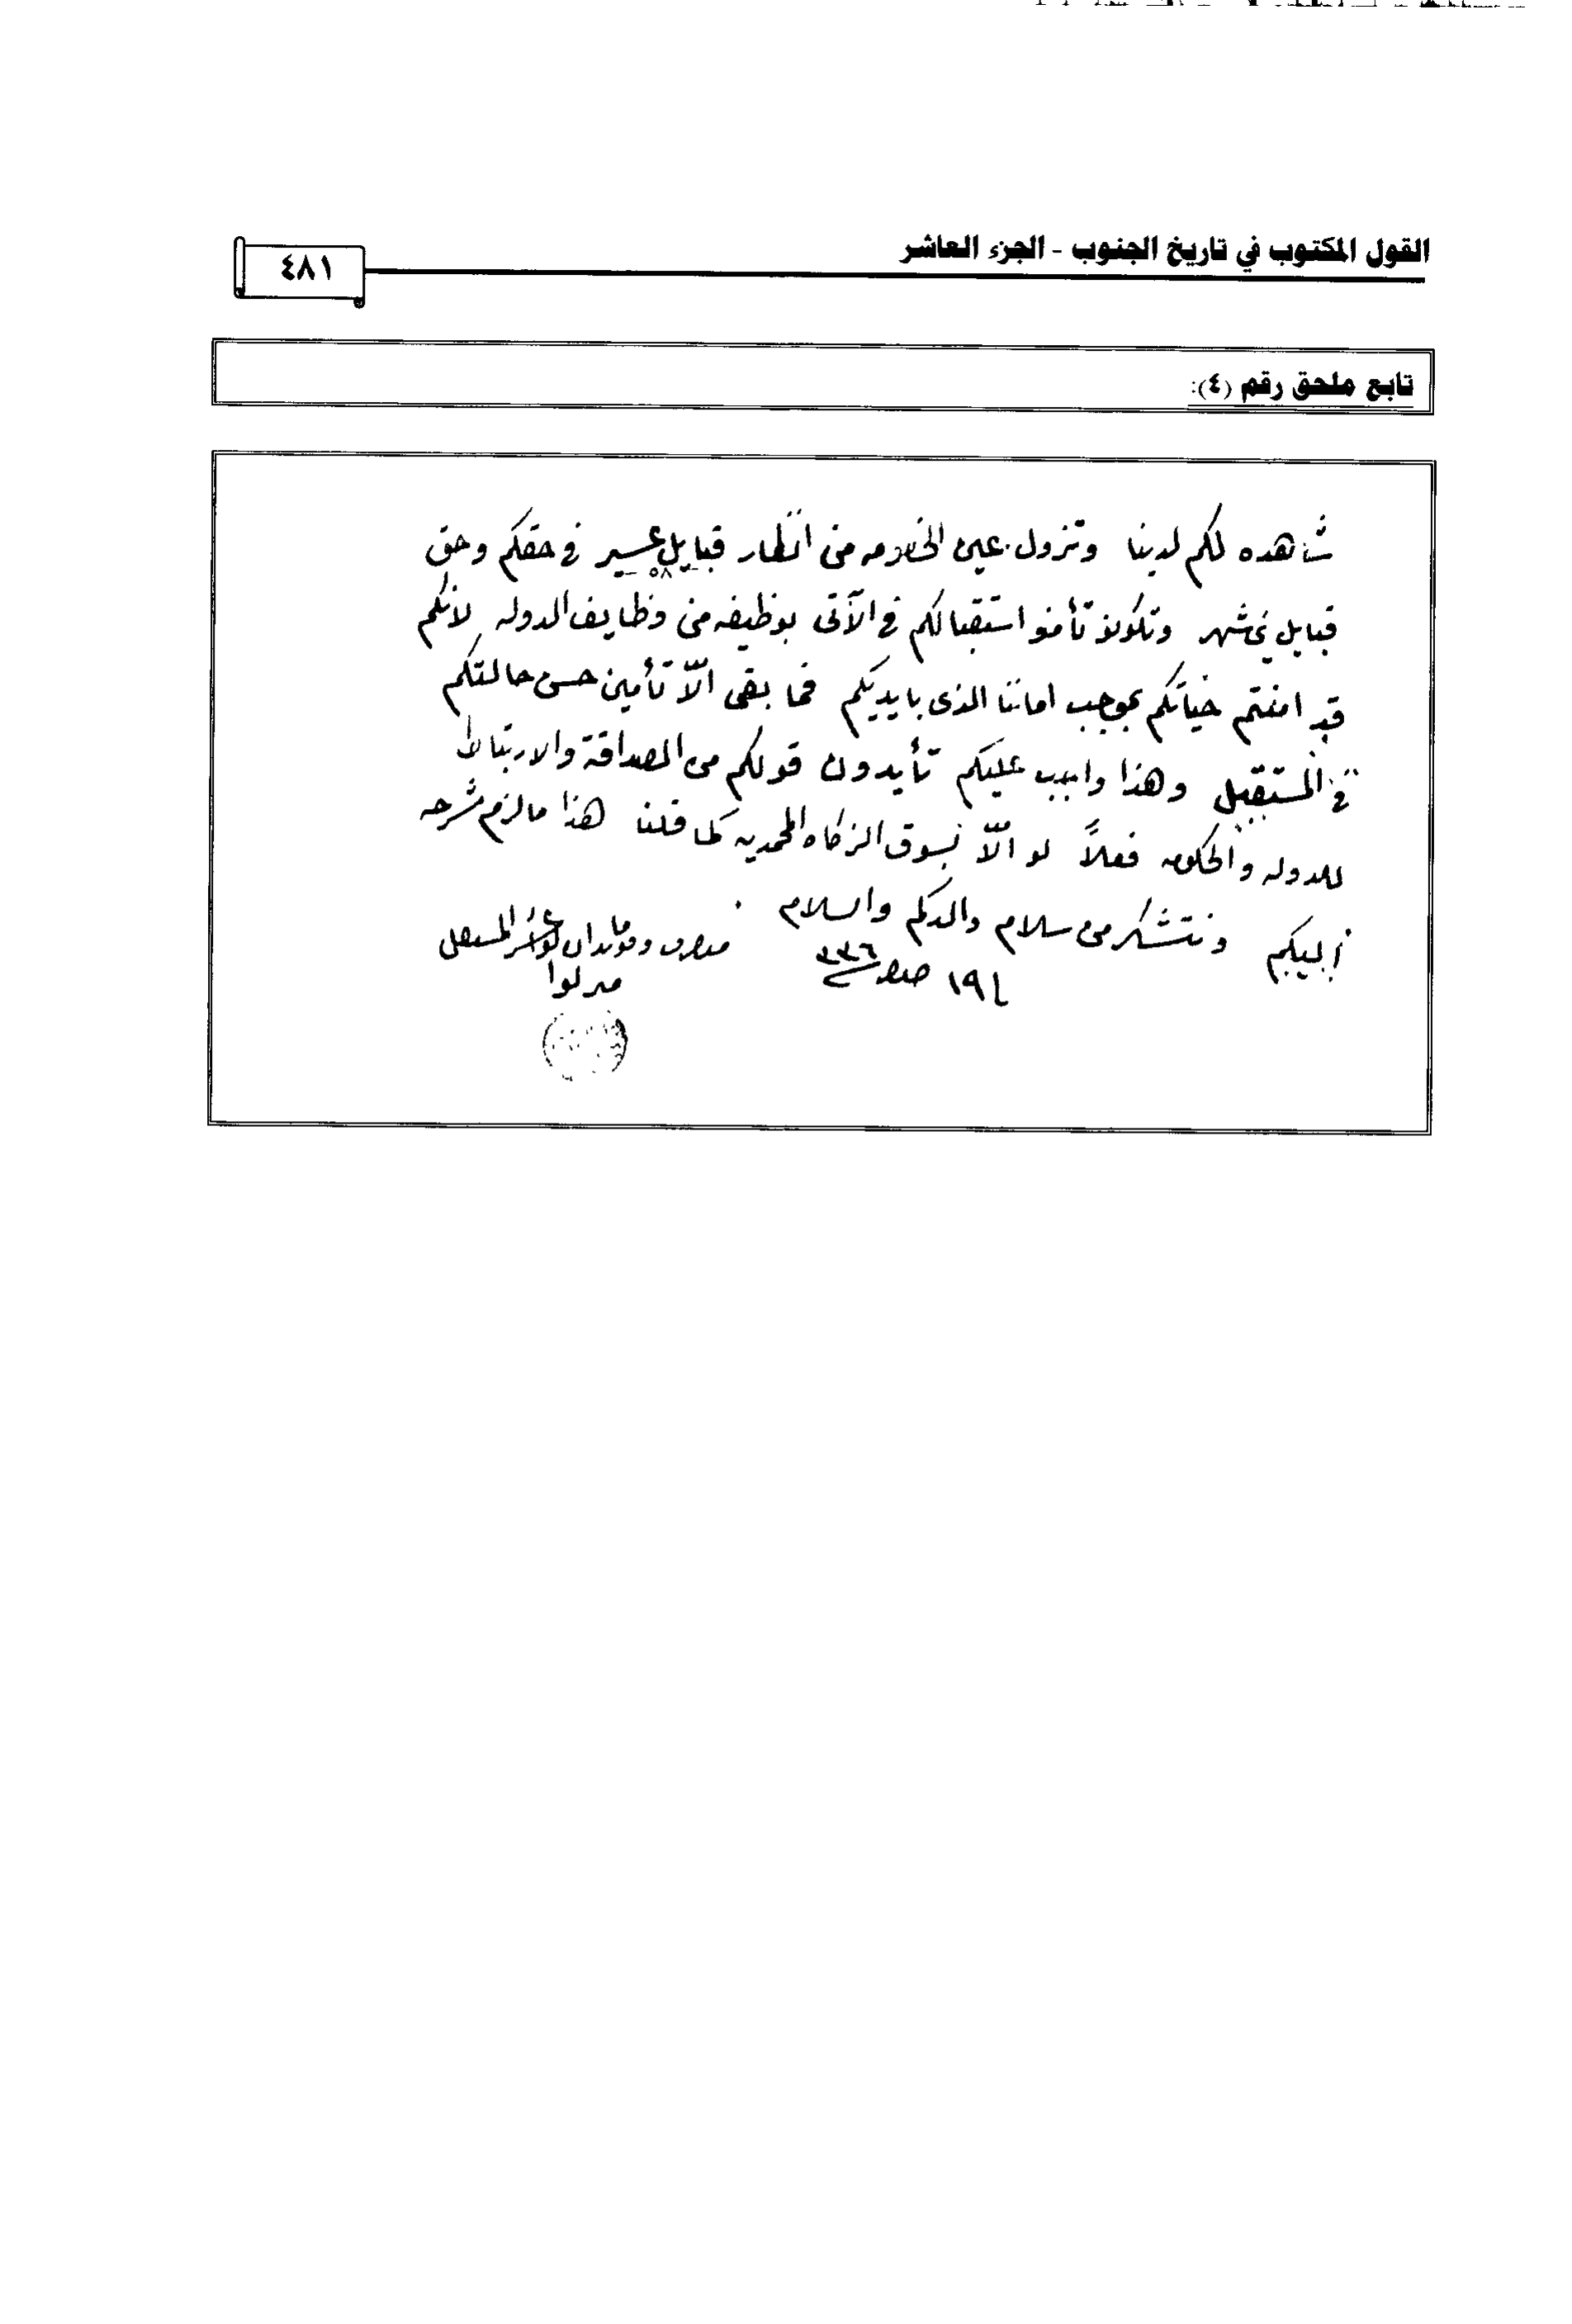 القول المكتوب في تاريخ الجنوب - الجزء العاشر
٤٨١
تابع ملحق رقم (٤):
شاهده لكم لدينا وتزول عين من انظار قبايل عسير في حقكم وحق
قبايل بني شهر وتكونو تأمنو استقبالكم في الآتى بوظيفه من وظايف الدوله لانكم
قد امنتم حياتكم بموجب اماننا الذى بايديكم فما بقى الّا تأمين حسن حالتكم
في المستقبل وهذا واجب عليكم تأيدون قولكم من الصداقة والارتباط
للدوله والحكومه فعلاً لو الّا بسوق الزكاه المحمديه كما قلنا هذا مالزم شرحه
اليكم ونتشكر من سلام والدكم والسلام .
متصرف وقومندان عسير
ميرلوا